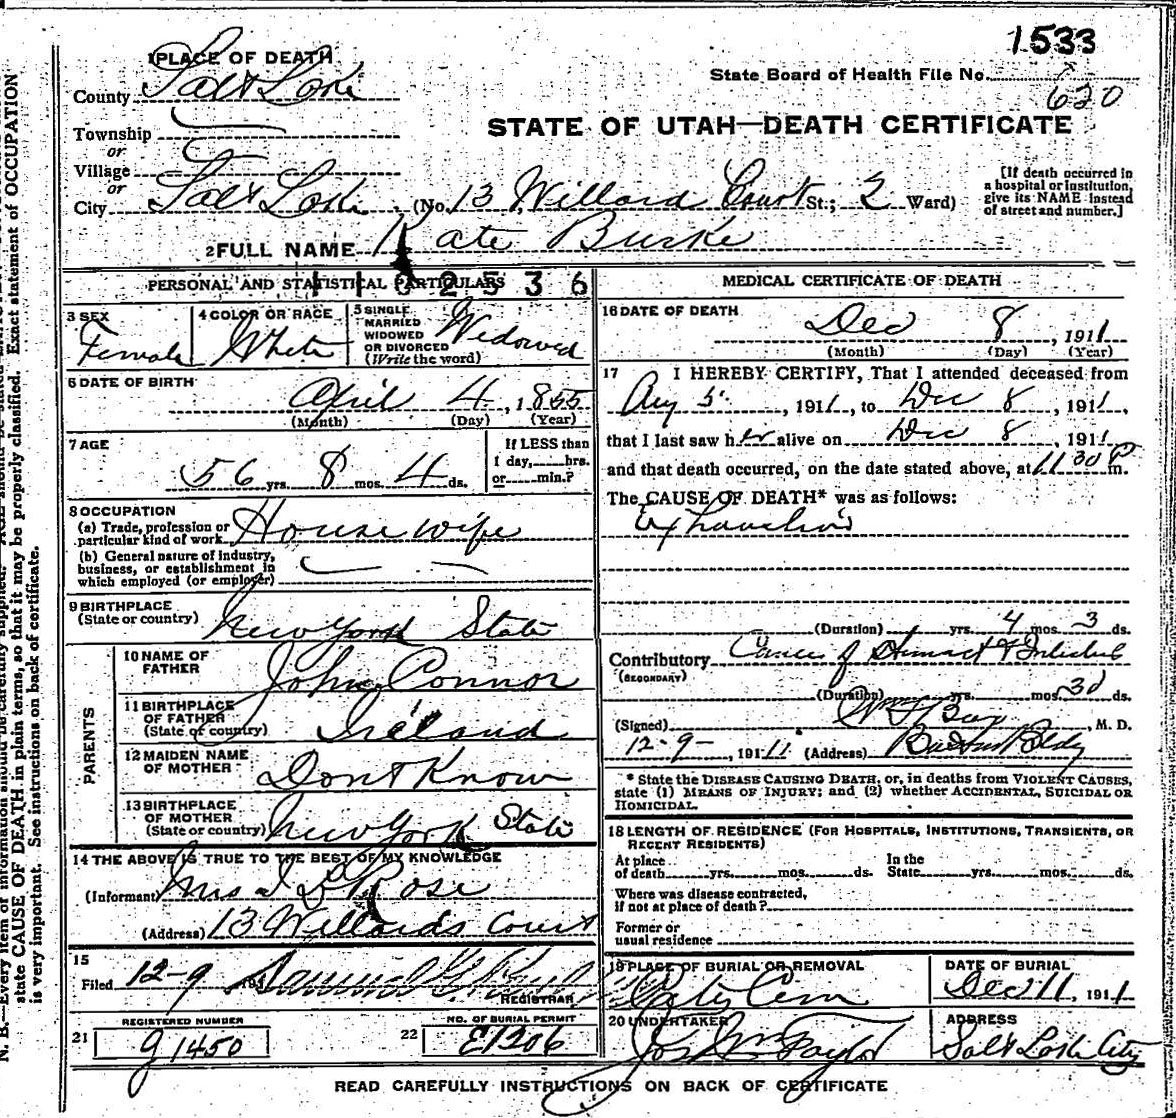 1533
1 PLACE OF DEATH
State Board of Health File No.
630
County Salt Lake
STATE OF UTAH—DEATH CERTIFICATE
Township
or
Village
or
City Salt Lake (No. 13 Willard Court St.; 2 Ward)
[If death occurred in
a hospital or institution,
give its NAME instead
of street and number.]
2 FULL NAME Kate Burke
PERSONAL AND STATISTICAL PARTICULARS
2536
3 SEX
Female
4 COLOR OR RACE
White
5 SINGLE
MARRIED
WIDOWED
OR DIVORCED
(Write the word)
Widowed
6 DATE OF BIRTH
April 4, 1855
(Month) (Day) (Year)
7 AGE
56 yrs. 8 mos. 4 ds.
If LESS than
1 day, hrs.
or min.?
8 OCCUPATION
(a) Trade, profession or
particular kind of work House wife
(b) General nature of industry,
business, or establishment in
which employed (or employer)
9 BIRTHPLACE
(State or country) New York State
PARENTS
10 NAME OF
FATHER John Connor
11 BIRTHPLACE
OF FATHER
(State or country) Ireland
12 MAIDEN NAME
OF MOTHER Dont Know
13 BIRTHPLACE
OF MOTHER
(State or country) New York State
14 THE ABOVE IS TRUE TO THE BEST OF MY KNOWLEDGE
(Informant) Mrs Rose
(Address) 13 Willards Court
15
Filed 12-9 191 Samuel G.
REGISTRAR
REGISTERED NUMBER
21 g1450
NO. OF BURIAL PERMIT
22 E1206
MEDICAL CERTIFICATE OF DEATH
16 DATE OF DEATH
Dec 8, 1911
(Month) (Day) (Year)
17 I HEREBY CERTIFY, That I attended deceased from
Aug 5, 1911, to Dec 8, 1911,
that I last saw her alive on Dec 8, 1911
and that death occurred, on the date stated above, at 11 30 P m.
The CAUSE OF DEATH* was as follows:
Exhaustion
(Duration) yrs. 4 mos. 3 ds.
Contributory Cancer of Stomach & Intestine
(SECONDARY)
(Duration) yrs. mos. 30 ds.
(Signed) Wm M. D.
12-9-, 191 11 (Address) Bldg
* State the DISEASE CAUSING DEATH, or, in deaths from VIOLENT CAUSES,
state (1) MEANS OF INJURY; and (2) whether ACCIDENTAL, SUICIDAL OR
HOMICIDAL.
18 LENGTH OF RESIDENCE (FOR HOSPITALS, INSTITUTIONS, TRANSIENTS, OR
RECENT RESIDENTS)
At place
of death yrs. mos. ds.
In the
State yrs. mos. ds.
Where was disease contracted,
if not at place of death?
Former or
usual residence
19 PLACE OF BURIAL OR REMOVAL
City Cem
DATE OF BURIAL
Dec 11, 1911
20 UNDERTAKER
Jos Wm Taylor
ADDRESS
Salt Lake City
READ CAREFULLY INSTRUCTIONS ON BACK OF CERTIFICATE
N. B.—Every item of information should be carefully supplied. AGE should be
state CAUSE OF DEATH in plain terms, so that it may be properly classified. Exact statement of OCCUPATION
is very important. See instructions on back of certificate.